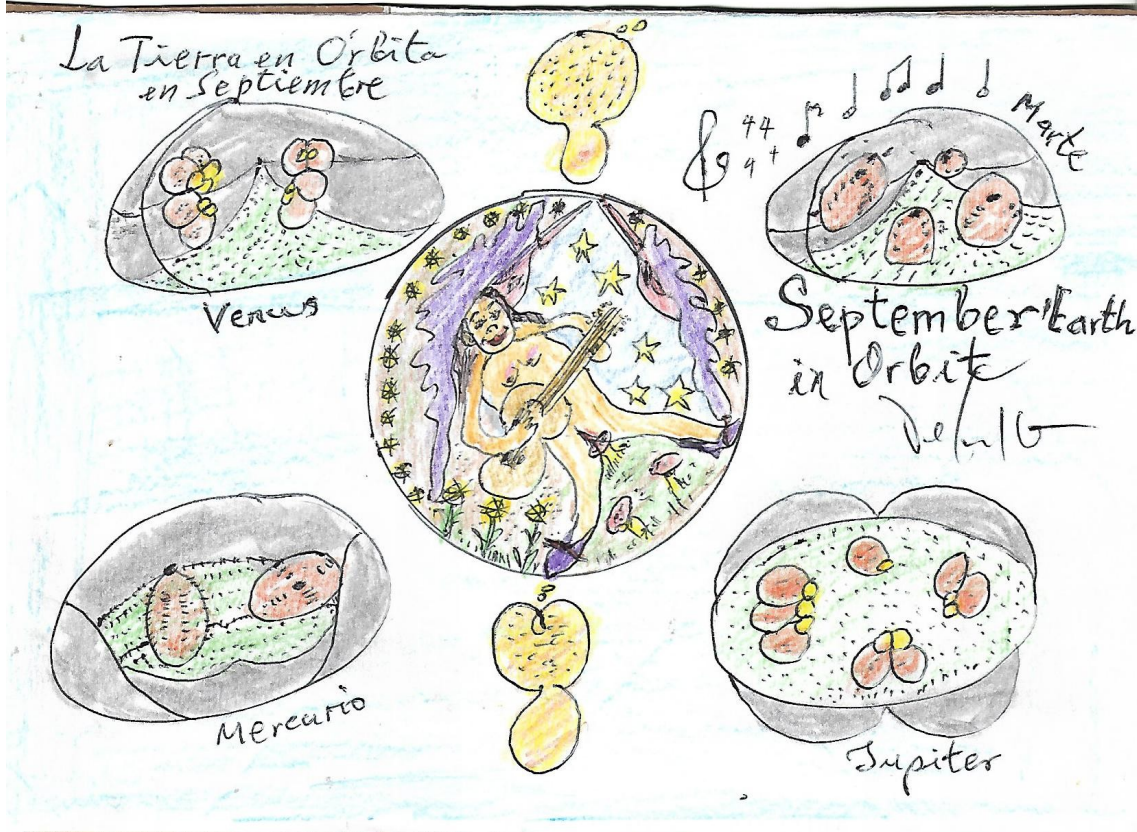 La Tierra en Órbita
en Septiembre
44
4+
Marte
Venus
September Earth
in Orbite
Mercurio
Jupiter